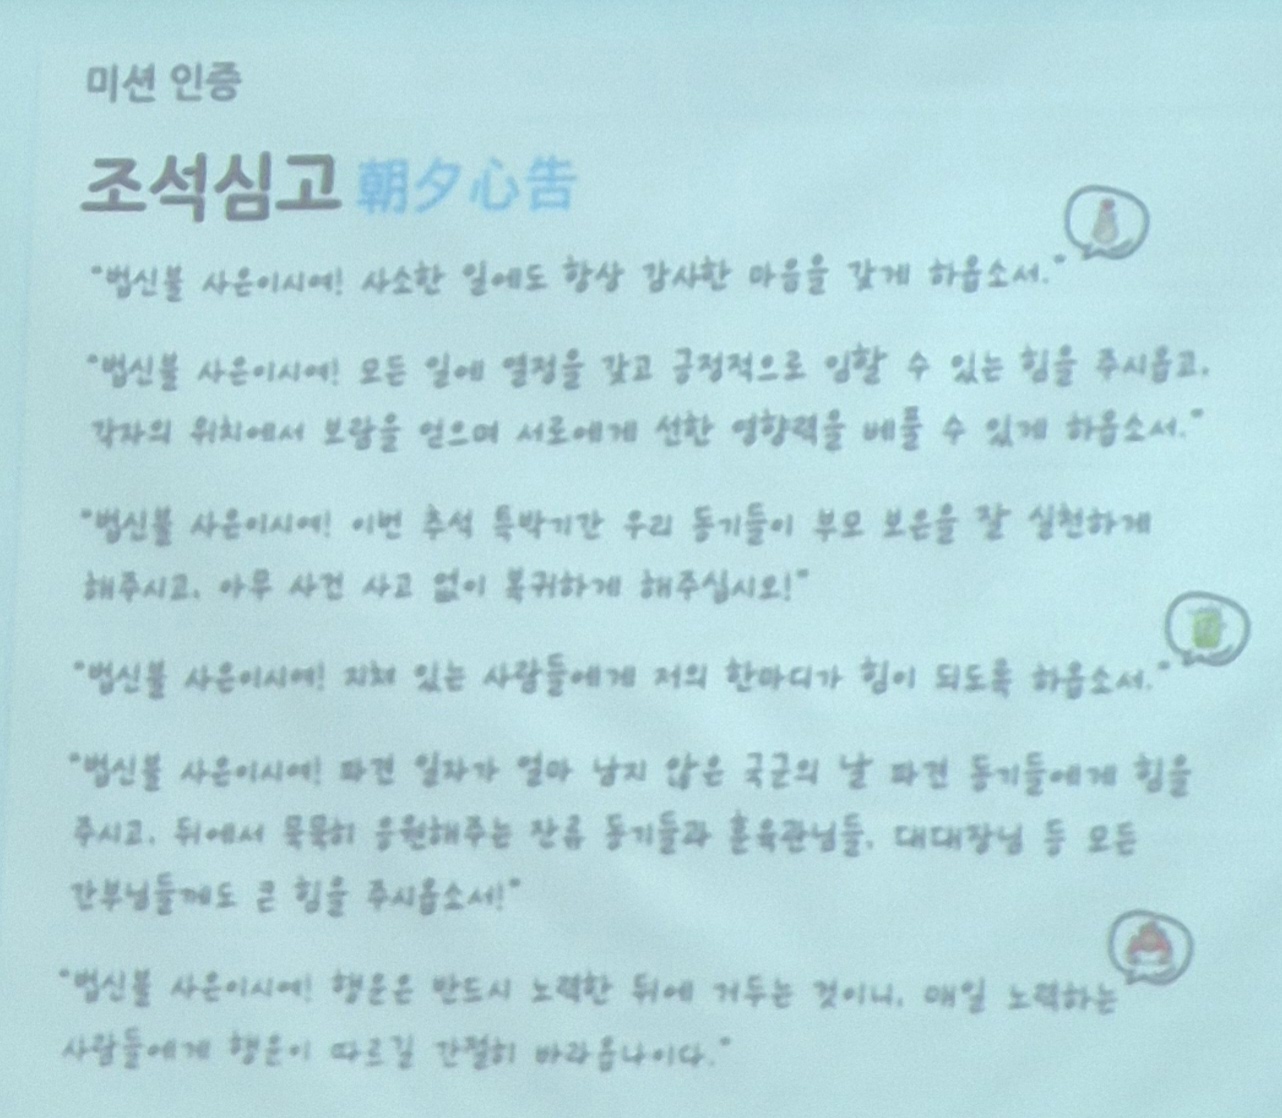 미션 인증
조석심고 朝夕心告
"법신불 사은이시여! 사소한 일에도 항상 감사한 마음을 갖게 하옵소서."
"법신불 사은이시여! 모든 일에 열정을 갖고 긍정적으로 임할 수 있는 힘을 주시옵고,
각자의 위치에서 보람을 얻으며 서로에게 선한 영향력을 베풀 수 있게 하옵소서."
"법신불 사은이시여! 이번 추석 특박기간 우리 동기들이 부모 보은을 잘 실천하게
해주시고, 아무 사건 사고 없이 복귀하게 해주십시오!"
"법신불 사은이시여! 지쳐 있는 사람들에게 저의 한마디가 힘이 되도록 하옵소서."
"법신불 사은이시여! 파견 일자가 얼마 남지 않은 국군의 날 파견 동기들에게 힘을
주시고, 뒤에서 묵묵히 응원해주는 잔류 동기들과 훈육관님들, 대대장님 등 모든
간부님들께도 큰 힘을 주시옵소서!"
"법신불 사은이시여! 행운은 반드시 노력한 뒤에 거두는 것이니, 매일 노력하는
사람들에게 행운이 따르길 간절히 바라옵나이다."